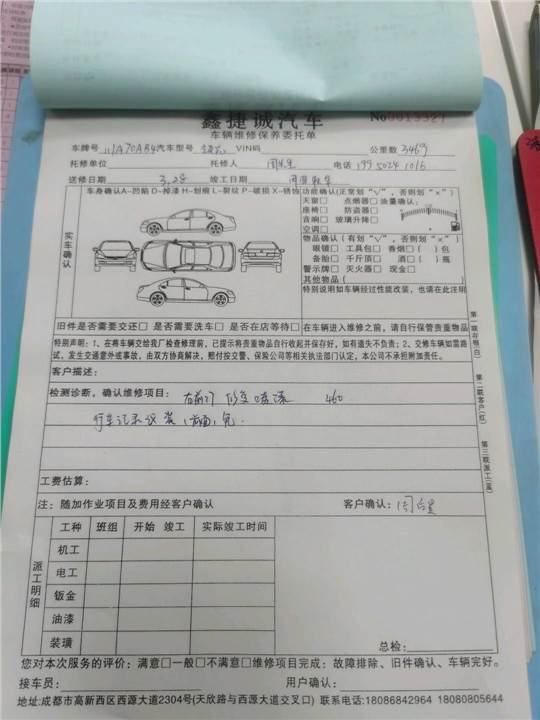 鑫捷诚汽车
车辆维修保养委托单
No0019927
车牌号 汽车型号 VIN码 公里数 3469
托修单位 托修人 周先生 电话 199 5024 1016
送修日期 3.28 竣工日期
实车确认
车身确认A-凹陷 D-掉漆 H-划痕 L-裂纹 P-破损 X-锈蚀
功能确认(正常划"√",否则划"×")
天窗□ 点烟器□ 油量确认:
座椅□ 防盗器□
音响□ 玻璃升降□
空调□
物品确认(有划"√",否则划"×")
眼镜□ 工具包□ 香烟(□)包
备胎□ 千斤顶□ 酒(□)瓶
警示牌□ 灭火器□ 现金□
其他物品( )
特别说明如车辆经过性能改装,也请在此注明
旧件是否需要交还□ 是否需要洗车□ 是否在店等待□
在车辆进入维修之前,请自行保管贵重物品
特别声明:1、在将车辆交给我厂检查修理前,已提示将贵重物品自行收起并保存好,如有遗失不负责;2、交修车辆如需路
试、发生交通意外或事故,由双方协商解决,赔付按交警、保险公司等相关执法部门认定,本公司不承担附加责任。
客户描述:
检测诊断,确认维修项目: 右前门 修复喷漆 460
行车记录仪 装,
工费估算:
注:随加作业项目及费用经客户确认 客户确认:
派工明细
工种 班组 开始 竣工 实际竣工时间
机工
电工
钣金
油漆
装璜
总检:
您对本次服务的评价:满意□一般□不满意□维修项目完成:故障排除、旧件确认、车辆完好。
接车员: 用户确认:
地址:成都市高新西区西源大道2304号(天欣路与西源大道交叉口) 联系电话:18086842964 18080805644
第一联存根(白)
第二联客户(红)
第三联派工(蓝)